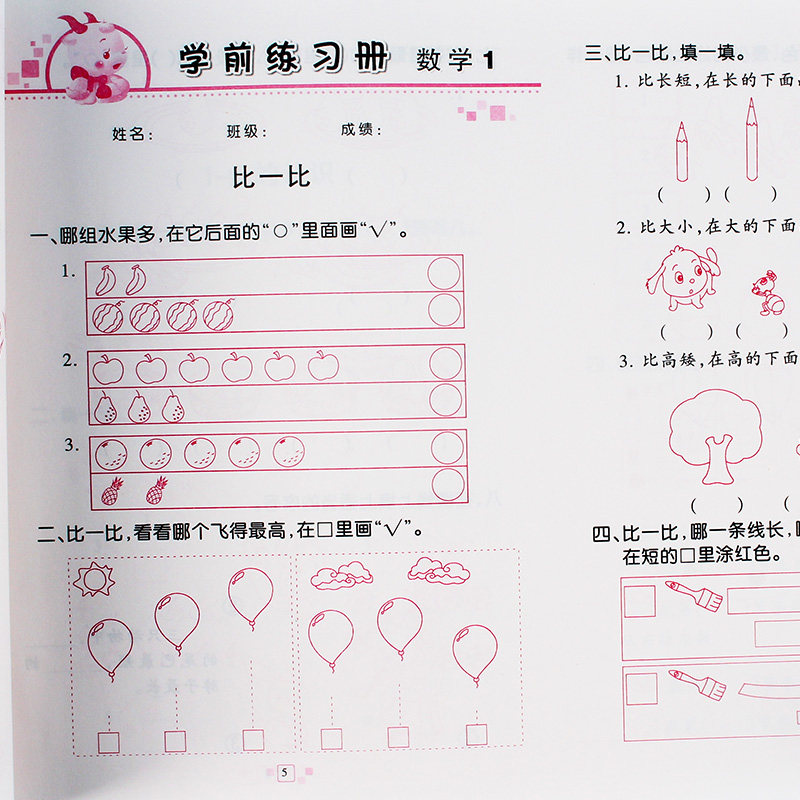 学前练习册 数学1
姓名: 班级: 成绩:
比一比
一、哪组水果多,在它后面的“○”里面画“√”。
1.
2.
3.
二、比一比,看看哪个飞得最高,在□里画“√”。
5
三、比一比,填一填。
1. 比长短,在长的下面
( ) ( )
2. 比大小,在大的下面
( ) ( )
3. 比高矮,在高的下面
( ) (
四、比一比,哪一条线长,
在短的□里涂红色。